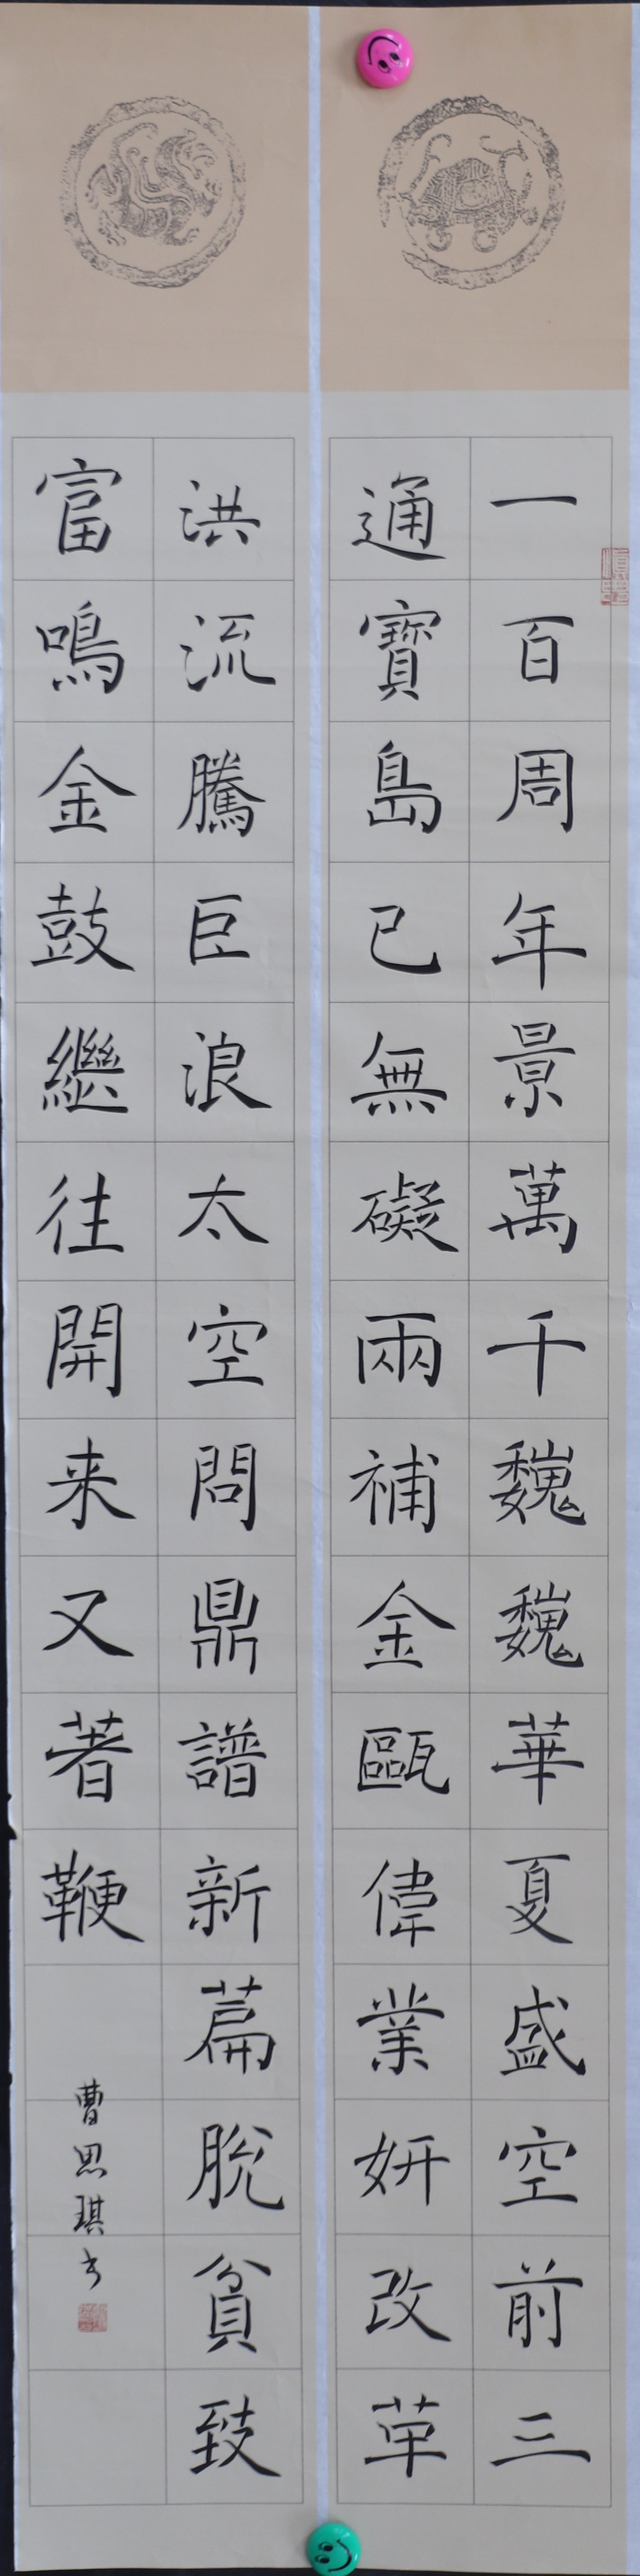 一百周年景萬千魏魏華夏盛空前三
通寶島已無礙兩補金甌偉業妍改革
洪流騰巨浪太空問鼎譜新篇脫貧致
富鳴金鼓繼往開来又著鞭
曹思琪书